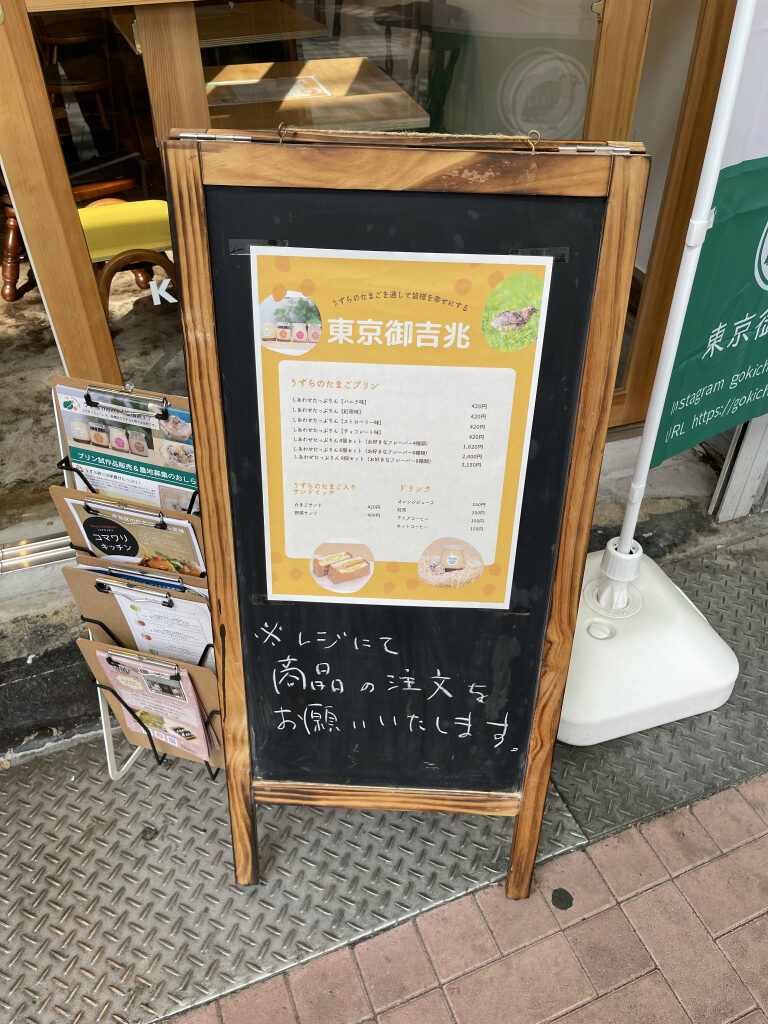 うずらのたまごを通して皆様を幸せにする
東京御吉兆
うずらのたまごプリン
しあわせたっぷりん【バニラ味】 420円
しあわせたっぷりん【紅茶味】 420円
しあわせたっぷりん【ストロベリー味】 420円
しあわせたっぷりん【チョコレート味】 420円
しあわせたっぷりん4個セット（お好きなフレーバー4種類） 1,620円
しあわせたっぷりん6個セット（お好きなフレーバー6種類） 2,400円
しあわせたっぷりん8個セット（お好きなフレーバー8種類） 3,150円
うずらのたまご入り
サンドイッチ
たまごサンド 420円
野菜サンド 400円
ドリンク
オレンジジュース 150円
紅茶 150円
アイスコーヒー 150円
ホットコーヒー 150円
※レジにて
商品の注文を
お願いいたします。
K
プリン試作品販売&農地募集のおしら
コマワリ
キッチン
東京御
nstagram gokich
URL https://gokich